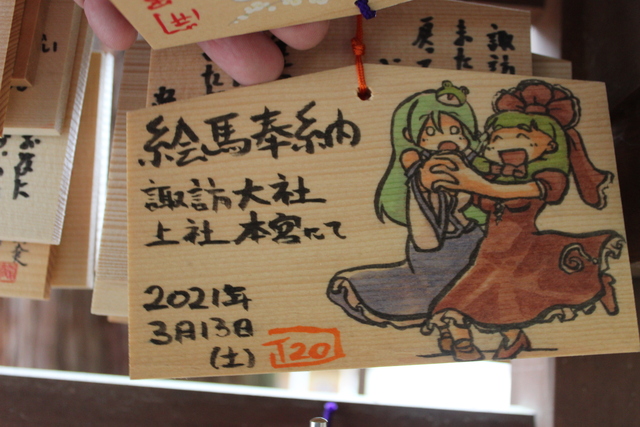 絵馬奉納
諏訪大社
上社 本宮にて
2021年
3月13日
(土)
J20
諏訪
また